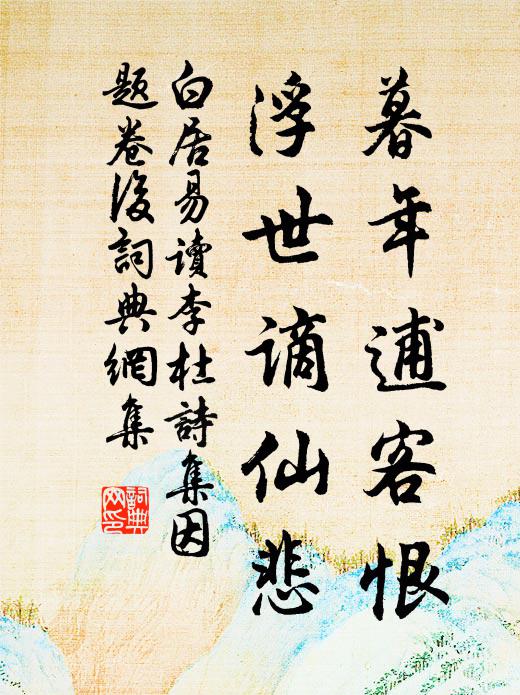 暮年逋客恨
浮世谪仙悲
白居易读李杜詩集因
题卷後詞典網集
詞典
网印